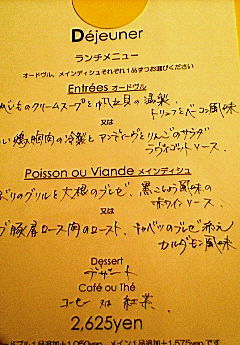 Déjeuner
ランチメニュー
オードヴル、メインディシュそれぞれ1品ずつお選びください
Entrées オードヴル
のクリームスープと帆立貝の温製、
トリュフとベーコン風味
又は
燻製胸肉の冷製とアンディーヴとりんごのサラダ
ラヴィゴットソース。
Poisson ou Viande メインディシュ
ぶりのグリルと大根のブレゼ、黒こしょう風味の
赤ワインソース。
又は
豚肩ロース肉のロースト、キャベツのブレゼ添え
カルダモン風味
Dessert
デザート
Café ou Thé
コーヒー 又は 紅茶
2,625yen
ードブル1品追加+1,050yen メイン1品追加+1,575yen です